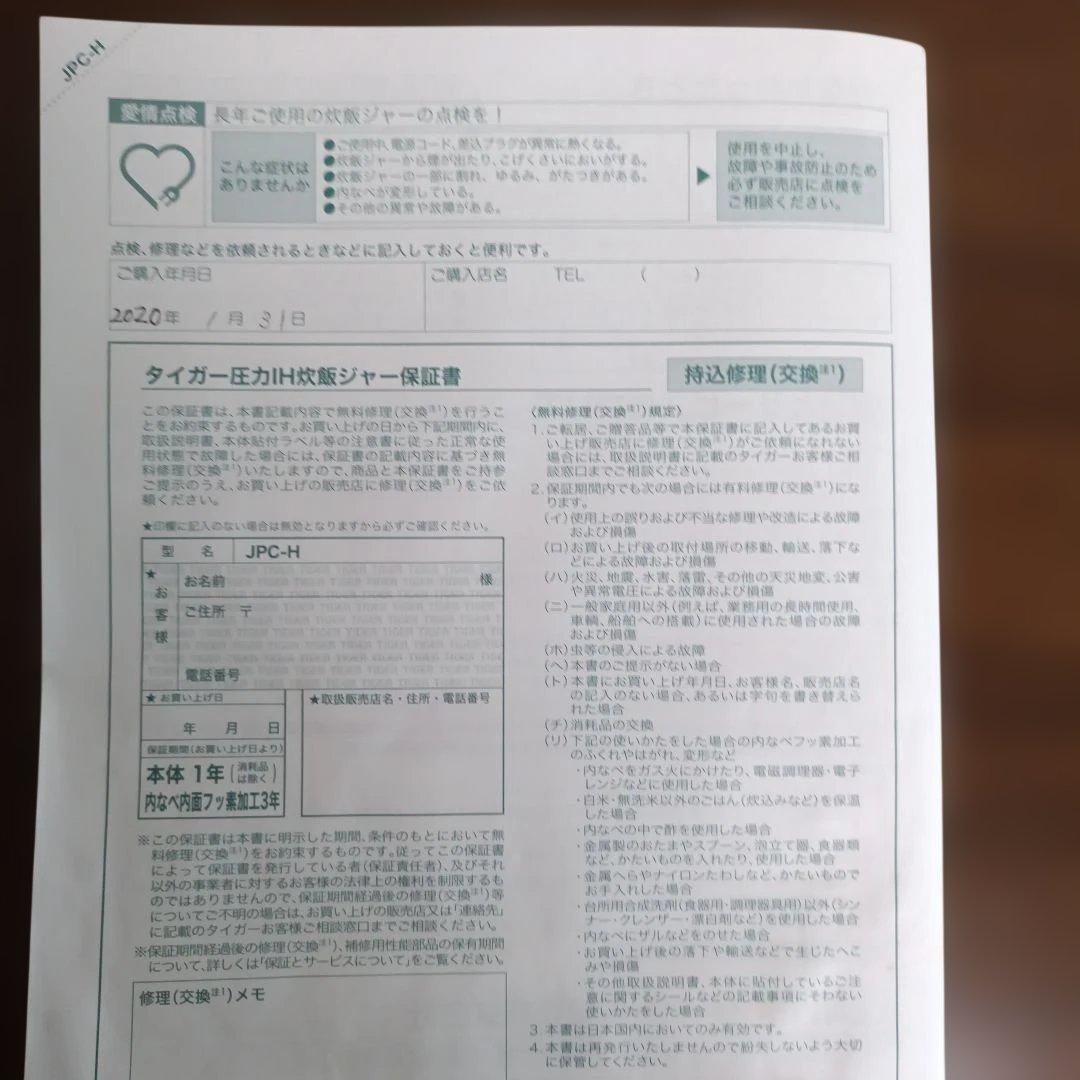 JPC-H
愛情点検 長年ご使用の炊飯ジャーの点検を！
こんな症状は
ありませんか
●ご使用中、電源コード、差込プラグが異常に熱くなる。
●炊飯ジャーから煙が出たり、こげくさいにおいがする。
●炊飯ジャーの一部に割れ、ゆるみ、がたつきがある。
●内なべが変形している。
●その他の異常や故障がある。
▶
使用を中止し、
故障や事故防止のため
必ず販売店に点検を
ご相談ください。
点検、修理などを依頼されるときなどに記入しておくと便利です。
ご購入年月日
2020年 1月 31日
ご購入店名 TEL ( )
タイガー圧力IH炊飯ジャー保証書
持込修理(交換注1)
この保証書は、本書記載内容で無料修理(交換注1)を行うこ
とをお約束するものです。お買い上げの日から下記期間内に、
取扱説明書、本体貼付ラベル等の注意書に従った正常な使
用状態で故障した場合には、保証書の記載内容に基づき無
料修理(交換注1)いたしますので、商品と本保証書をご持参
ご提示のうえ、お買い上げの販売店に修理(交換注1)をご依
頼ください。
★印欄に記入のない場合は無効となりますから必ずご確認ください。
型 名 JPC-H
★お客様
お名前 様
ご住所 〒
電話番号
★お買い上げ日
年 月 日
保証期間(お買い上げ日より)
本体 1年(消耗品は除く)
内なべ内面フッ素加工3年
★取扱販売店名・住所・電話番号
※この保証書は本書に明示した期間、条件のもとにおいて無
料修理(交換注1)をお約束するものです。従ってこの保証書
によって保証書を発行している者(保証責任者)、及びそれ
以外の事業者に対するお客様の法律上の権利を制限するも
のではありませんので、保証期間経過後の修理(交換注1)等
についてご不明の場合は、お買い上げの販売店又は「連絡先」
に記載のタイガーお客様ご相談窓口までご相談ください。
※保証期間経過後の修理(交換注1)、補修用性能部品の保有期間
について、詳しくは「保証とサービスについて」をご覧ください。
修理(交換注1)メモ
〈無料修理(交換注1)規定〉
1. ご転居、ご贈答品等で本保証書に記入してあるお買
い上げ販売店に修理(交換注1)がご依頼になれない
場合には、取扱説明書に記載のタイガーお客様ご相
談窓口までご相談ください。
2. 保証期間内でも次の場合には有料修理(交換注1)にな
ります。
(イ)使用上の誤りおよび不当な修理や改造による故障
および損傷
(ロ)お買い上げ後の取付場所の移動、輸送、落下な
どによる故障および損傷
(ハ)火災、地震、水害、落雷、その他の天災地変、公害
や異常電圧による故障および損傷
(ニ)一般家庭用以外(例えば、業務用の長時間使用、
車輌、船舶への搭載)に使用された場合の故障
および損傷
(ホ)虫等の侵入による故障
(ヘ)本書のご提示がない場合
(ト)本書にお買い上げ年月日、お客様名、販売店名
の記入のない場合、あるいは字句を書き替えら
れた場合
(チ)消耗品の交換
(リ)下記の使いかたをした場合の内なべフッ素加工
のふくれやはがれ、変形など
・内なべをガス火にかけたり、電磁調理器・電子
レンジなどに使用した場合
・白米・無洗米以外のごはん(炊込みなど)を保温
した場合
・内なべの中で酢を使用した場合
・金属製のおたまやスプーン、泡立て器、食器類
など、かたいものを入れたり、使用した場合
・金属へらやナイロンたわしなど、かたいもので
お手入れした場合
・台所用合成洗剤(食器用・調理器具用)以外(シン
ナー・クレンザー・漂白剤など)を使用した場合
・内なべにザルなどをのせた場合
・お買い上げ後の落下や輸送などで生じたへこ
みや損傷
・その他取扱説明書、本体に貼付しているご注
意に関するシールなどの記載事項にそわない
使いかたをした場合
3. 本書は日本国内においてのみ有効です。
4. 本書は再発行いたしませんので紛失しないよう大切
に保管してください。